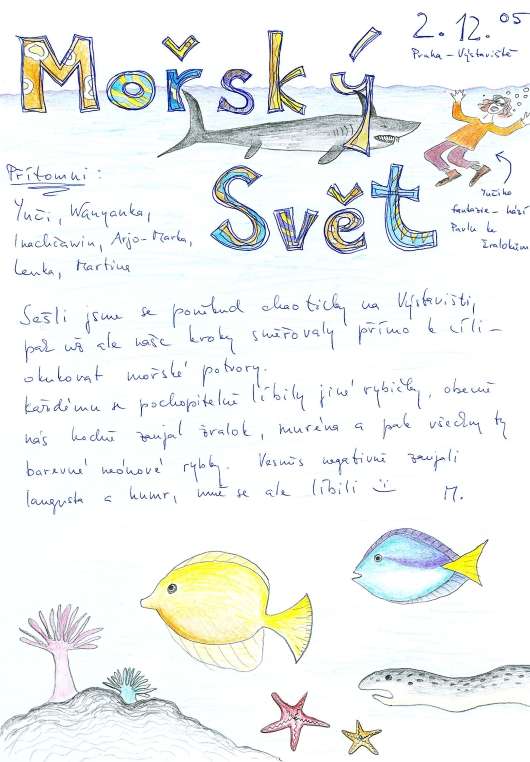 2. 12. 05
Praha – Výstaviště
Mořský
Svět
Yučiho
fantazie – hází
Pavlu ke
žralokům
Přítomni :
Yuči, Wanyanka,
Inachiawin, Arjo-Marka,
Lenka, Martina
Sešli jsme se poněkud chaoticky na Výstavišti,
pak už ale naše kroky směřovaly přímo k cíli –
okukovat mořské potvory.
Každému se pochopitelně líbily jiné rybičky, obecně
nás hodně zaujal žralok, muréna a pak všechny ty
barevné neónové rybky. Vesměs negativně zaujali
langusta a humr, mně se ale líbili :) M.